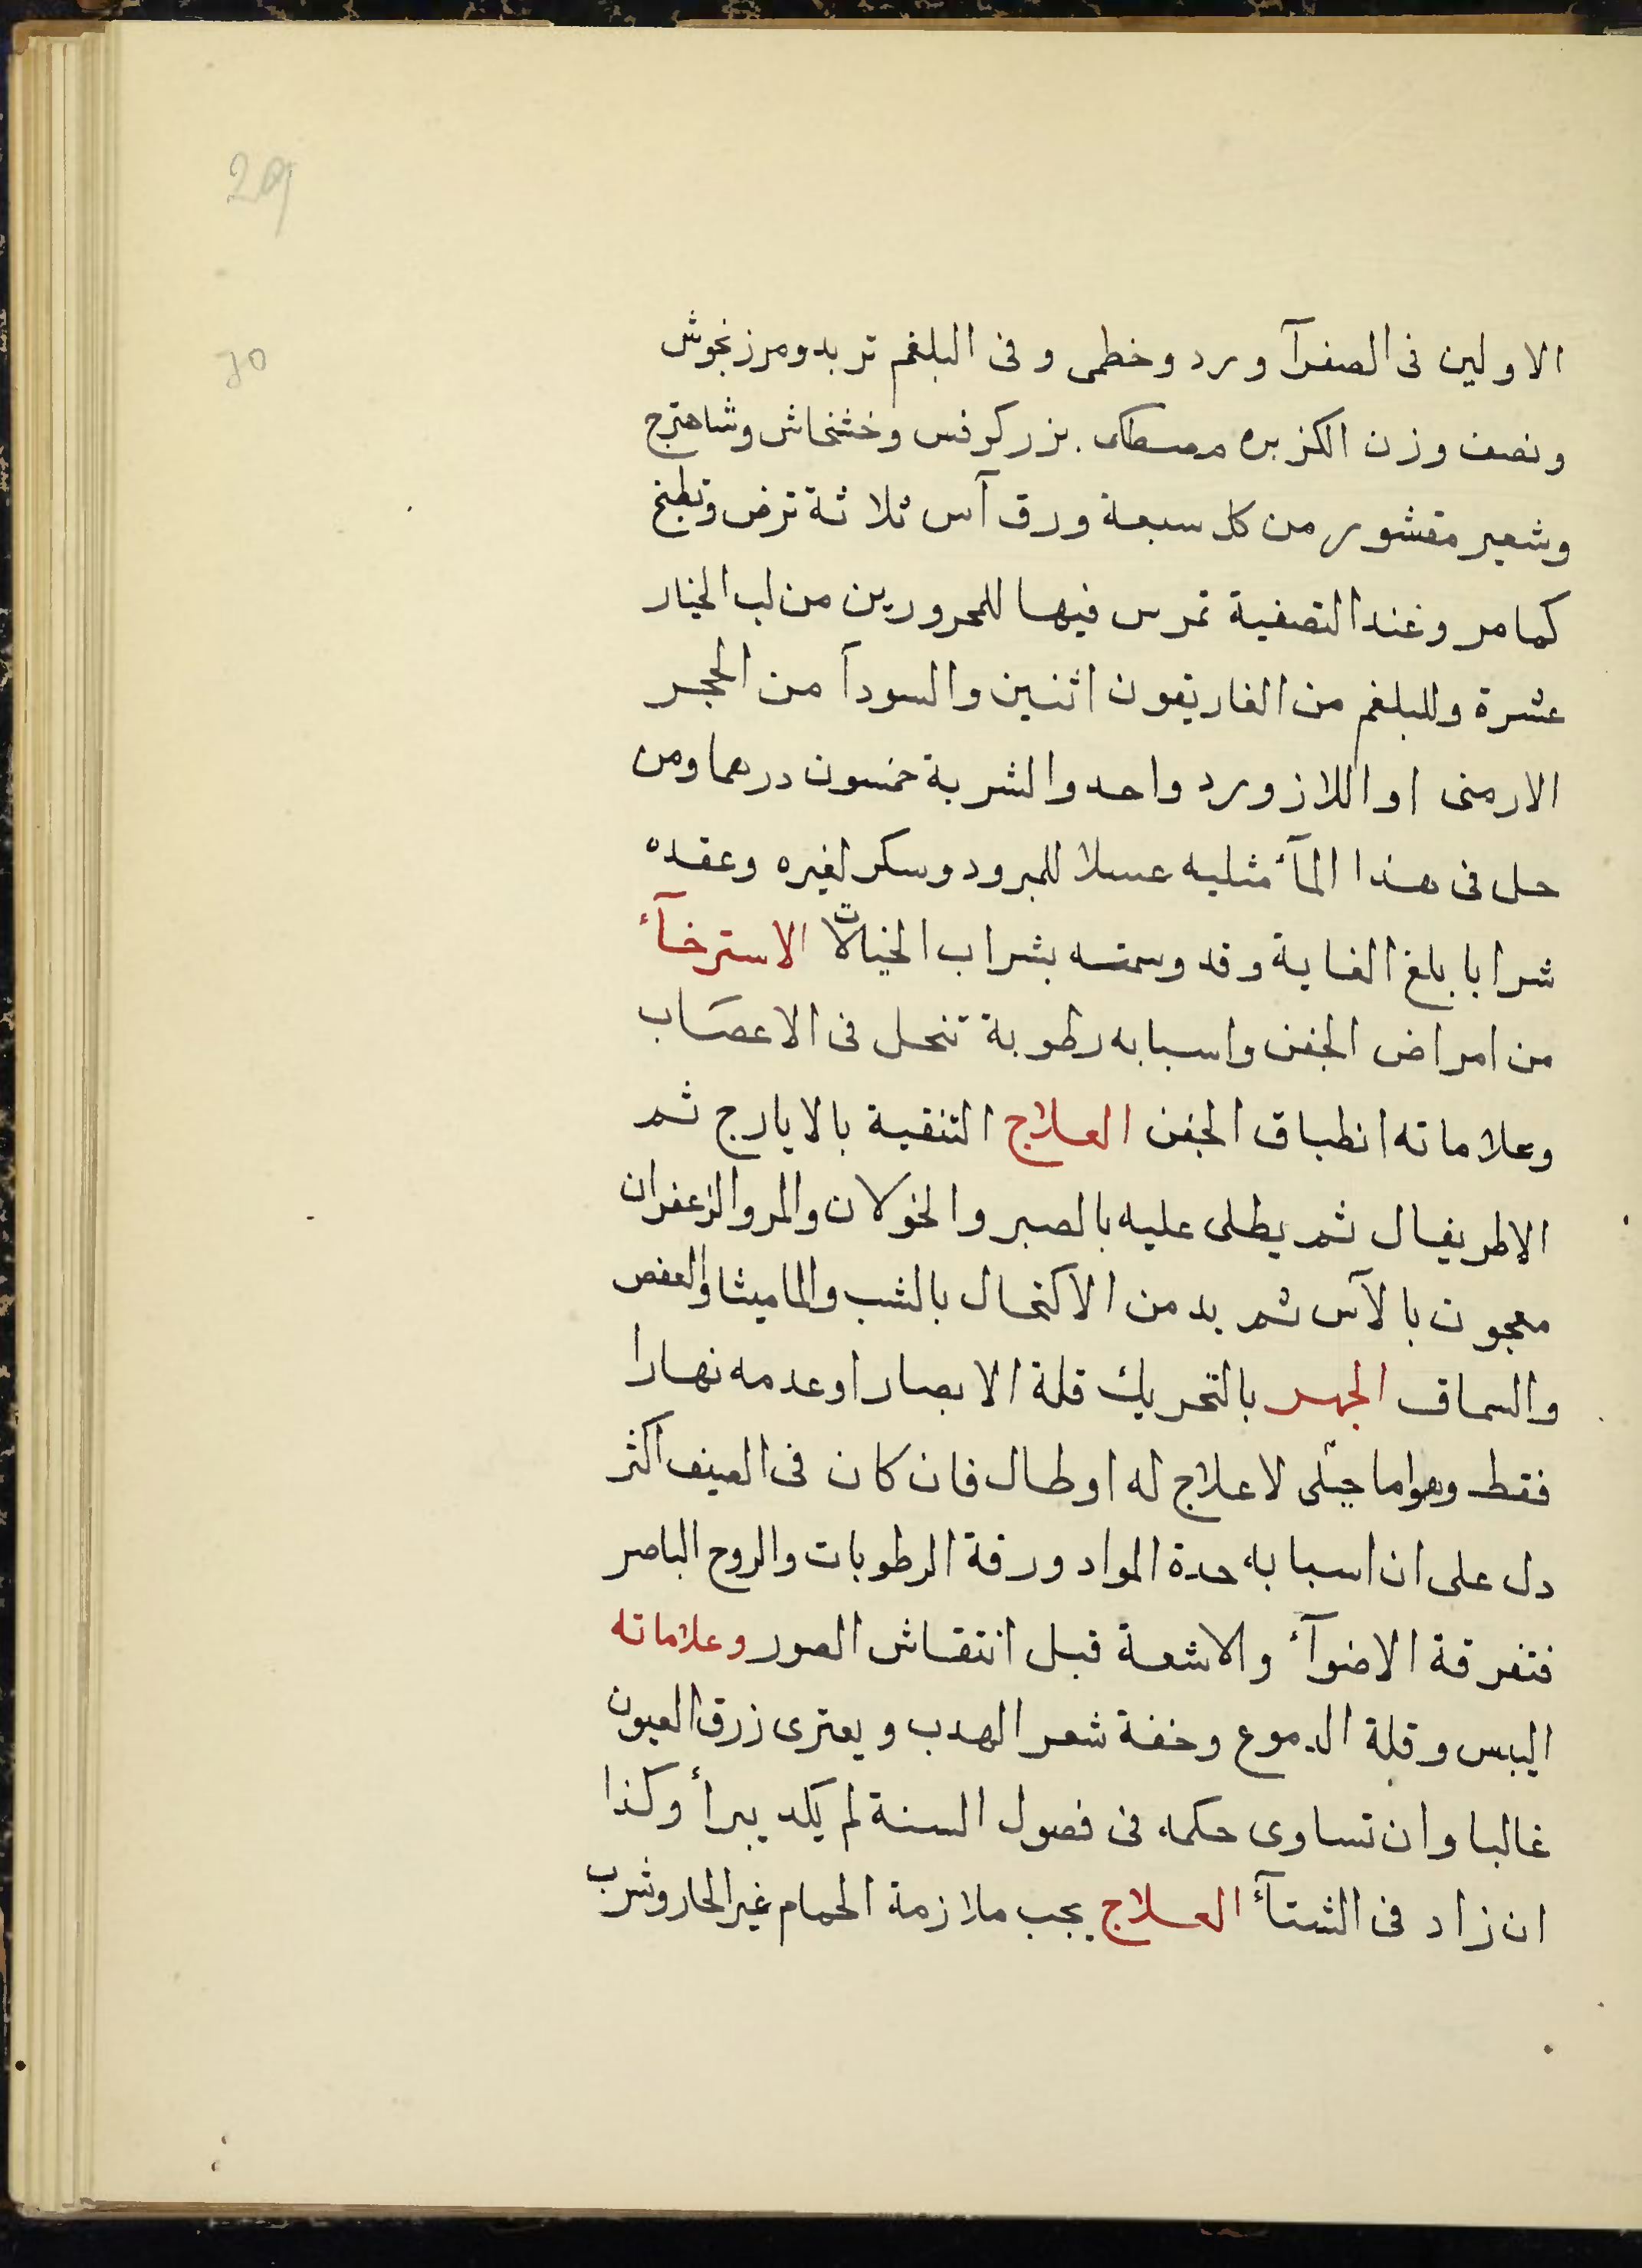 29
30
الاولين فى الصفرآ ورد وخطمى وفى البلغم تربد ومرزنجوش
ونصف وزن الكزبره مصطكى بزركرفس وخشخاش وشاهترج
وشعير مقشور من كل سبعة ورق آس ثلاثة ترض وتطبخ
كما مر وعند التصفية تمرس فيها للمحرورين من لب الخيار
عشرة وللبلغم من الغاريقون اثنين والسودآ من الحجر
الارمنى او اللازورد واحد والشربة خمسون درهما ومن
حل فى هذا المآء مثليه عسلا للمبرود وسكر لغيره وعقده
شرابا بلغ الغاية وقد وسمته بشراب الخيالات الاسترخآء
من امراض الجفن واسبابه رطوبة تنحل فى الاعصاب
وعلاماته انطباق الجفن العلاج التنقية بالايارج ثم
الاطريفال ثم يطلى عليه بالصبر والخولان والمر والزعفران
معجون بالآس ثم بد من الاكتحال بالشب والماميثا والعفص
والسماق الجهر بالتحريك قلة الابصار او عدمه نهارا
فقط وهو اما جبلى لا علاج له او طال فان كان فى الصيف اكثر
دل على ان اسبابه حدة المواد ورقة الرطوبات والروح الباصر
فتفرقة الاضوآء والاشعة قبل انتقاش الصور وعلاماته
اليبس وقلة الدموع وخفة شعر الهدب ويعترى زرق العيون
غالبا وان تساوى حكمه فى فصول السنة لم يكد يبرأ وكذا
ان زاد فى الشتآء العلاج يجب ملازمة الحمام غير الحار وشرب